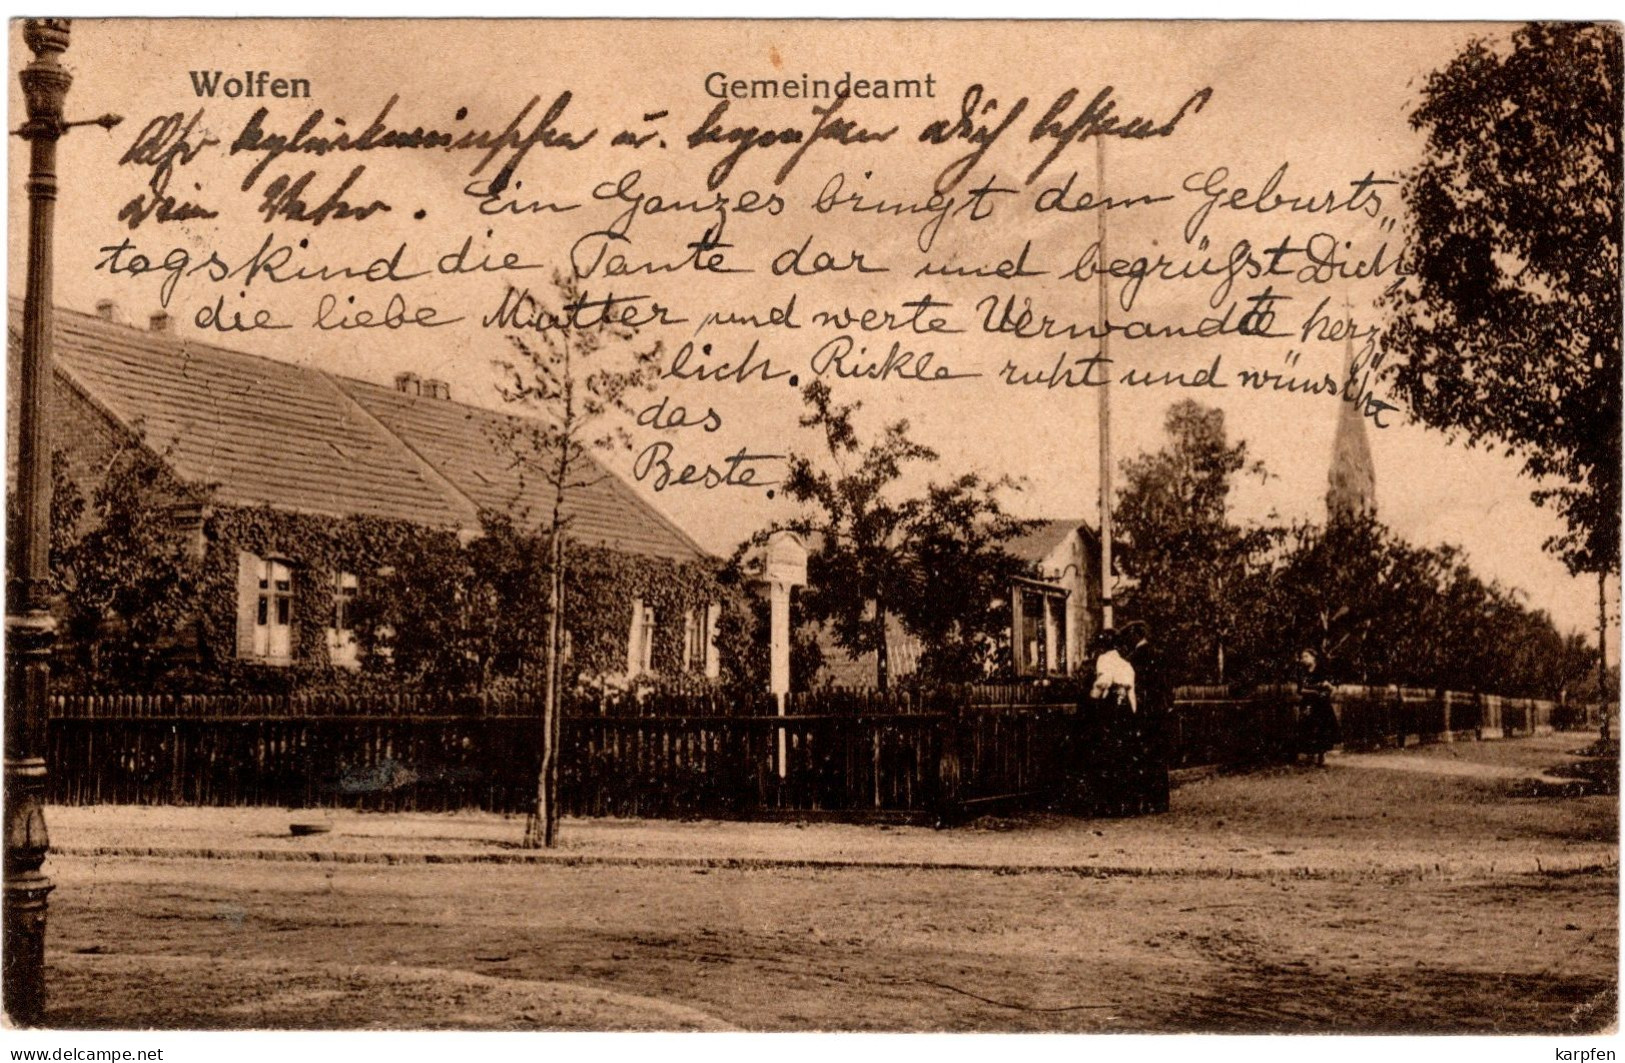 Wolfen Gemeindeamt
Wir beglückwünschen u. begrüßen Dich bestens
Dein Vater. Ein Ganzes bringt dem Geburts„
tagskind die Tante dar und begrüßst Dich,
die liebe Mutter und werte Verwandte herz„
lich. Rickle ruht und wünscht
das
Beste.
www.delcampe.net
karpfen